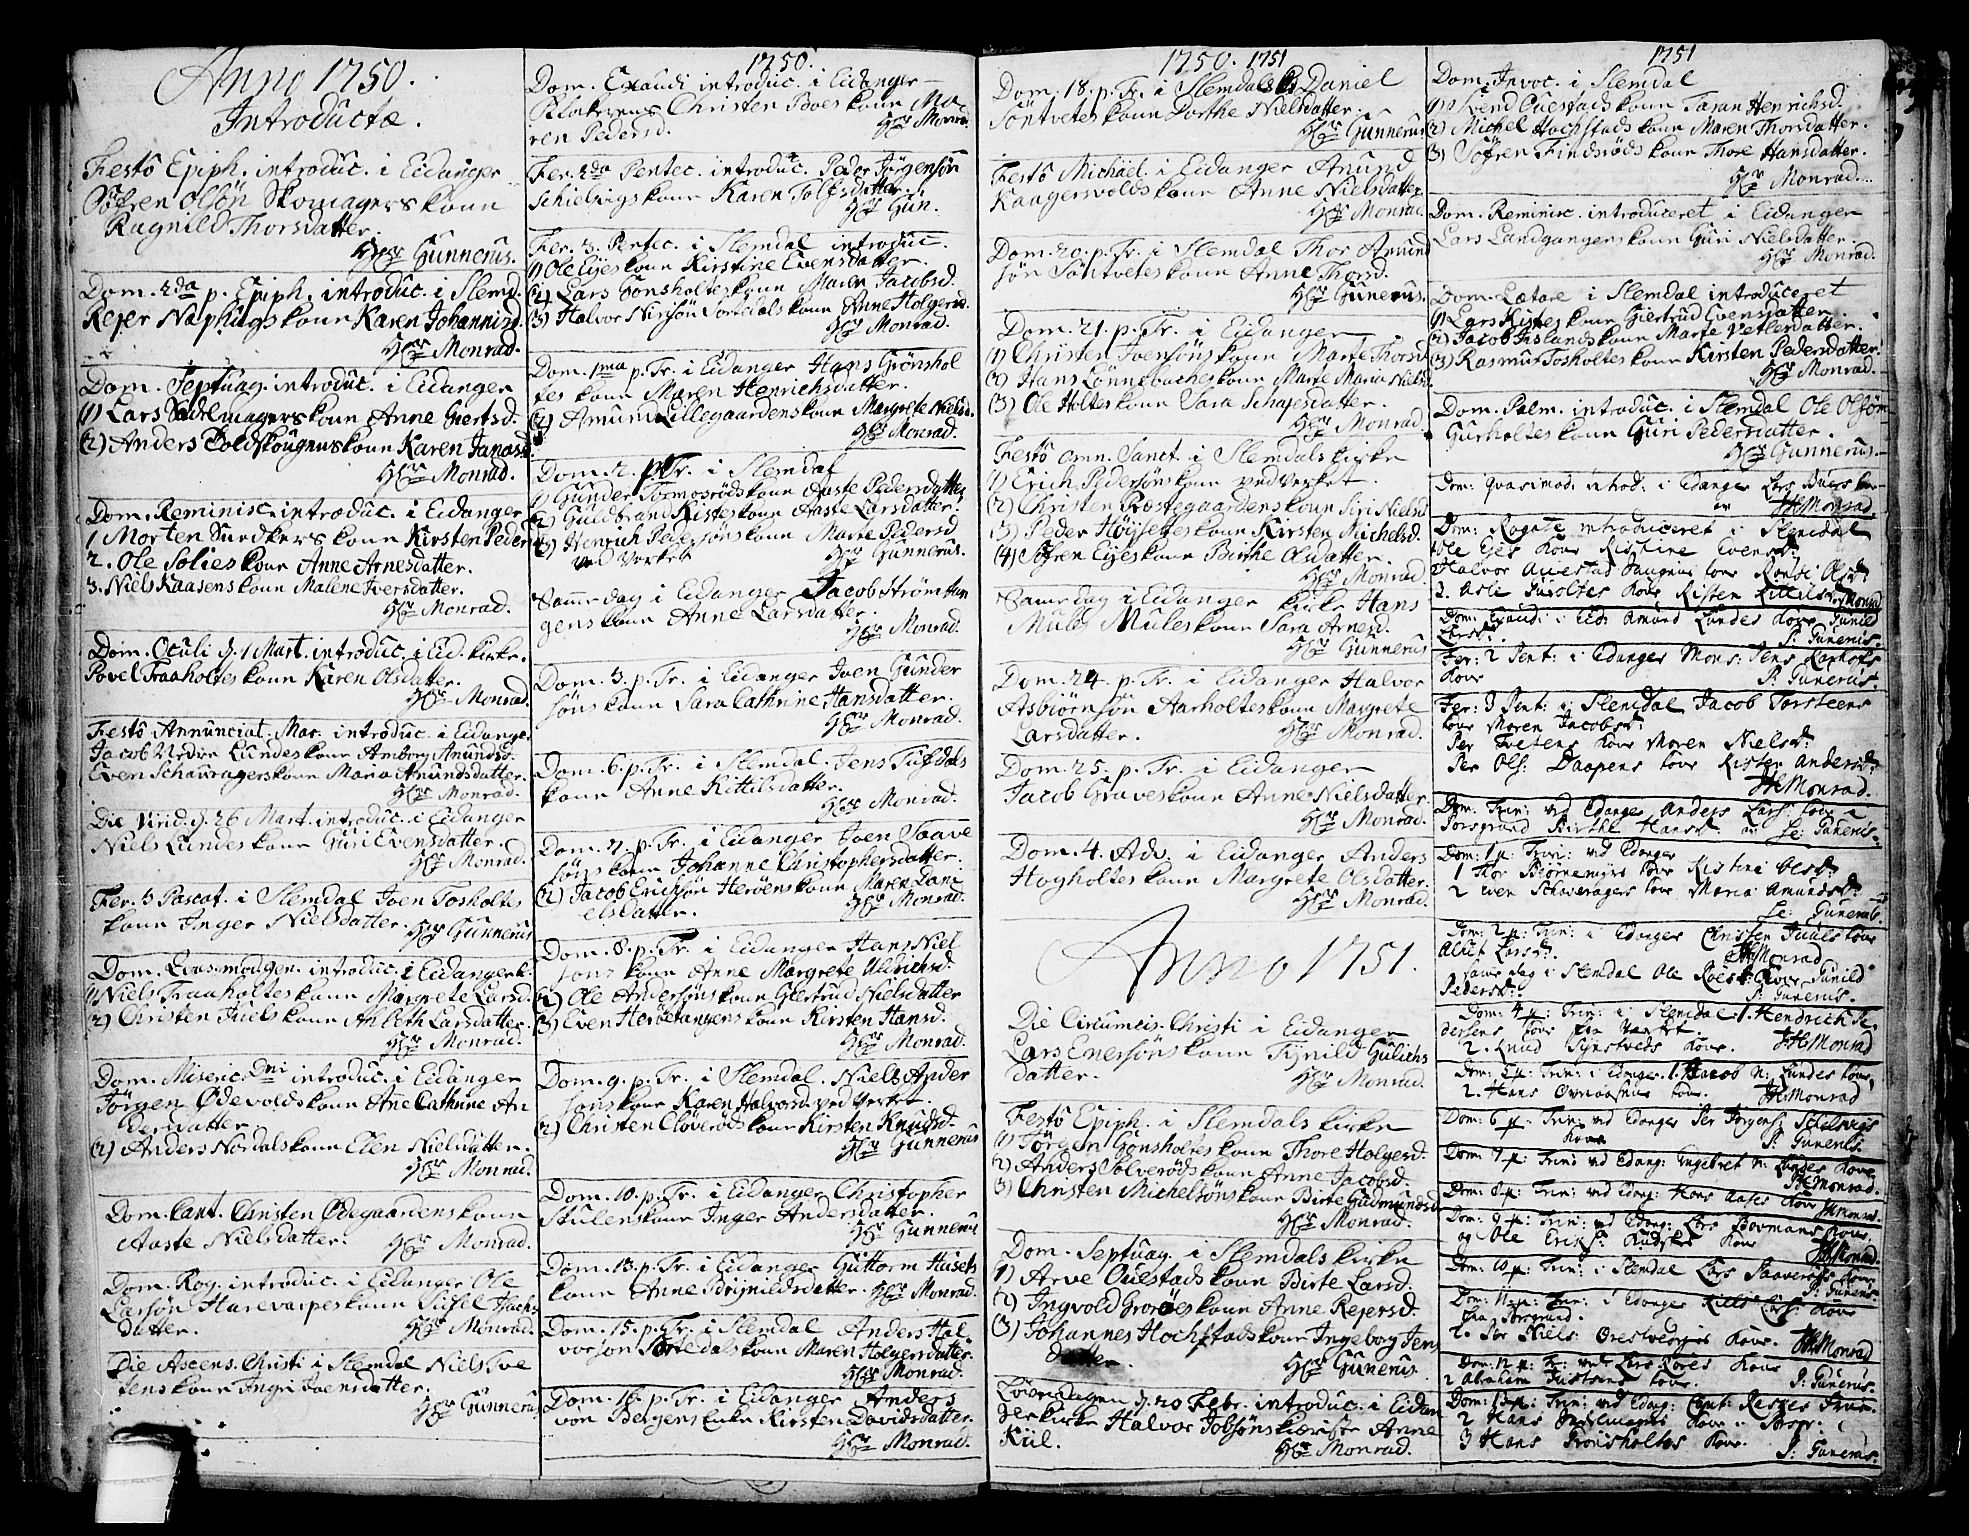 Anno 1750.
Introductæ.
Festô Epiph. introduc. i Eidanger
Söfren Olsön Skomagers kone
Ragnild Thorsdatter.
Her Gunnerus.
Dom. 2da p. Epiph. introduc. i Slemd.
Rejer Naphugs kone Karen Johannisd.
Her Monrad.
Dom. Septuag. introduc. i Eidanger
1) Lars Sadelmagers kone Anne Giertsd.
2) Anders Boldskougens kone Karen Janasd.
Her Monrad.
Dom. Reminisc. introduc. i Eidanger
1 Morten Snedkers kone Kirsten Peders
2. Ole Solies kone Anne Arnesdatter.
3. Niels Kaasens kone Malene Iversdatter.
Her Monrad.
Dom. Oculi d. 1 Mart. introduc. i Eid. kirke.
Povel Traaholtes kone Karen Olsdatter.
Her Monrad.
Festô Annunciat. Mar. introduc. i Eidanger
Jacob Nedre Lundes kone Amborg Anundsd.
Even Schavragers kone Maria Anundsdatter.
Her Monrad.
Die Virid. d. 26 Mart. introduc. i Eidanger
Niels Lundes kone Guri Evensdatter.
Her Monrad.
Fer. 3 Pascat. i Slemdal Joen Tosholtes
kone Inger Nielsdatter.
Her Gunnerus
Dom. Quasimodogen. introduc. i Eidanger k.
1) Niels Traaholtes kone Margrete Larsd.
2) Christen Juels kone Anbeth Larsdatter.
Her Monrad.
Dom. Miseric. Dni introduc. i Eidanger
Jörgen Ødevolds kone Anne Cathrine An
dersdatter.
2) Anders Nordals kone Elen Nielsdatter.
Her Monrad.
Dom. Cant. Christen Ødegaardens kone
Aaste Nielsdatter.
Her Monrad.
Dom. Rog. introduc. i Eidanger Ole
Larsön Harevarpes kone Sissel Jachs
datter.
Her Monrad.
Die Ascens. Christi i Slemdal Niels Tve
tens kone Ingri Joensdatter.
Her Gunnerus
1750.
Dom. Exaudi introduc. i Eidanger
Klokerens Christen Boes kone Ma-
ren Pedersd.
Her Monrad
Fer. 2da Pentec. introduc. Peder Jörgensön
Schielvigs kone Karen Tolfsdatter.
Her Gun.
Fer. 3. Pentec. i Slemdal introduc.
1) Ole Eyes kone Kirstine Evensdatter.
2) Lars Gonsholtes kone Maren Jacobsd.
3) Halvor Nirisön Sortedals kone Anne Holgersd.
Her Monrad.
Dom. 1ma p. Tr. i Eidanger Hans Grönshol
tes kone Maren Henrichsdatter.
2) Amund Lillegaardens kone Margrete Nielsd.
Her Monrad.
Dom. 2. p. Tr. i Slemdal
1) Gunder Tormosröds kone Aaste Pedersdatter
2) Guldbrand Kistes kone Aaste Larsdatter.
3) Henrich Pedersöns kone Marte Pedersd.
ved Verket
Her Gunnerus.
Samme dag i Eidanger Jacob Ström Han
gens kone Anne Larsdatter.
Her Monrad.
Dom. 3. p. Tr. i Eidanger Joen Gunder
söns kone Sara Cathrine Hansdatter.
Her Monrad.
Dom. 6. p. Tr. i Slemdal Jens Tufdals
kone Anne Kittilsdatter.
Her Monrad.
Dom. 7. p. Tr. i Eidanger Joen Saave
söns kone Johanne Christophersdatter.
2) Jacob Ericksön Heröens kone Maren Dani
elsdatter.
Her Monrad.
Dom. 8. p. Tr. i Eidanger Hans Niel
söns kone Anne Margrete Uldrichsd.
2) Ole Andersöns kone Giertrud Nielsdatter
3) Even Heröetangens kone Kirsten Hansd.
Her Monrad.
Dom. 9. p. Tr. i Slemdal. Niels Ander
söns kone Karen Halvorsd. ved Verket.
2) Christen Cloveröds kone Kirsten Knudsd.
Her Gunnerus
Dom. 10. p. Tr. i Eidanger Christopher
Skulens kone Inger Andersdatter.
Her Gunnerus
Dom. 13. p. Tr. i Eidanger Guttorm Husets
kone Anne Brijnildsdatter.
Her Monrad.
Dom. 15. p. Tr. i Slemdal Anders Hal-
vorsön Sortedals kone Maren Holgersdatter.
Her Monrad.
Dom. 16. p. Tr. i Eidanger Anders
von Bergens Enke Kirsten Davidsdatter.
Her Monrad.
1750. 1751
Dom. 18. p. Tr. i Slemdal Daniel
Söntvetes kone Dorthe Nielsdatter.
Her Gunnerus
Festô Michael. i Eidanger Anund
Kaagersvolds kone Anne Nielsdatter
Her Monrad.
Dom. 20. p. Tr. i Slemdal Thor Amund
sön Söntvetes kone Anne Thorsd.
Her Gunerus.
Dom. 21. p. Tr. i Eidanger
1) Christen Joensöns kone Marte Thorsd.
2) Hans Lönnebaches kone Marte Maria Nielsd.
3) Ole Holtes kone Sara Schajesdatter.
Her Monrad.
Festô Omn. Sanct. i Slemdals kirke
1) Erich Pedersöns kone ved Verket
2) Christen Præstegaardens kone Siri Nielsd.
3) Peder Höyjsetes kone Kirsten Michelsd.
4) Söfren Eyes kone Birthe Olsdatter
Her Monrad.
Same dag i Eidanger kirke Hans
Mules Mules kone Sara Arnesd.
Her Gunnerus
Dom. 24. p. Tr. i Eidanger Halvor
Asbiörnsön Aarholtes kone Margrete
Larsdatter.
Her Monrad.
Dom. 25. p. Tr. i Eidanger
Jacob Graves kone Anne Nielsdatter.
Her Monrad.
Dom. 4. Adv. i Eidanger Anders
Hogholtes kone Margrete Olsdatter.
Her Monrad.
Anno 1751.
Die Circumcis. Christi i Eidanger
Lars Enersöns kone Tjnild Gulichs
datter.
Her Monrad.
Festô Epiph. i Slemdals kirke
1) Jörgen Gonsholtes kone Thore Holgersd.
2) Anders Solveröds kone Anne Jacobsd.
3) Christen Michelsöns kone Birte Gudmundsd.
Her Monrad.
Dom. Septuag. i Slemdals kirke
1) Arve Ouestads kone Birte Larsd.
2) Ingvold Groröes kone Anne Rejersd.
3) Johannes Hochstads kone Ingeborg Jens
datter.
Her Gunerus.
Löverdagen d. 20 Febr. introduc. i Eidan
gerkirke Halvor Jobsöns kiæriste Anne
Kiil.
Her Monrad.
1751
Dom. Invoc. i Slemdal
1) Svend Ouestads kone Taran Henrichsd.
2) Michel Hochstads kone Maren Thorsdatter.
3) Söfren Findsröds kone Thore Hansdatter.
Her Monrad.
Dom. Reminisc. introduceret i Eidanger
Lars Landgangens kone Guri Nielsdatter.
Her Monrad.
Dom. Lætare i Slemdal introduceret
1) Lars Kistes kone Giertrud Evensdatter.
2) Jacob Fislands kone Marte Vetlesdatter.
3) Rasmus Tosholtes kone Kirsten Pedersdatter.
Her Monrad.
Dom. Palm. introduc. i Slemdal Ole Olsön
Gurholtes kone Guri Pedersdatter.
Her Gunnerus.
Dom: Quasimod. introd: i Edanger Lars Buers kone
av JH Monrad.
Dom: Rogate introduceret i Slemdal
1 Ole Ejes kone Kistine Evensd:
2 Halvor Auestad kone Ronti Olsd:
3. Asle Guholtes kone Kisten Kittilsd: Monrad
Dom: Exaud: i Eid: Amund Lundes kone Gunild
Larsd:
S: Gunerus.
Fer: 2 Pent: i Edanger Mons: Jens Karhofs
kone
S: Gunerus.
Fer: 3 Pent: i Slemdal Jacob Torsteens
kone Maren Jacobsd:
Per Tvetens kone Maren Nielsd:
Per Ols: Daapens kone Kisten Andersd:
JH Monrad.
Dom: Trin: ved Edanger Anders Lars: kone
Porsgrund Birthe Hansd av Se: Gunerus.
Dom: 1 p: Trin: ved Edanger
1 Thor Biörnemyrs kone Kistine Olsd:
2 Even Schaveragers kone Maria Amundsd:
Se: Gunerus.
Dom: 2 p: Trin: i Edanger Christen Juuls kone
Albet Larsd:
JH Monrad
same dag i Slemdal Ole kone Gunild
Pedersd:
S: Gunerus.
Dom: 4 p: Trin: i Slemdal 1. Hendrich Pe-
dersens kone
2. Knud Synstveds kone.
JH Monrad
Dom: 5 p: Trin: i Edanger. 1. Jacob N: Lundes kone,
2. Hans Ovnaasens kone.
JH Monrad
Dom: 6 p: Trin: ved Edanger Per Jörgens: Schelsvigs
kone
S: Gunerus.
Dom: 7 p: Trin: ved Edang: Ingebret N: Lundes kone
JH Monrad.
Dom: 8 p: Trin: ved Edang: Hans Aases kone JH Monrad.
Dom: 9 p: Trin: ved Edang: Lars Bovmans kone.
og Ole Eriks: kone
JH Monrad.
Dom: 10 p: Trin: i Slemdal Lars Saaverøds kone
S: Gunerus
Dom: 11 p: Trin: i Edanger Niels Lars: kone
fra Porsgrund.
2. Per Niels Orestvedjes kone.
JH Monrad
Dom: 12 p: Tr: ved kone
2 Abraham kone.
S: Gunerus.
Dom: 13 p: Trin: ved Edang:
2 Hans Sadelmagers kone
3 Hans Grönsholtes kone.
S: Gunerus.